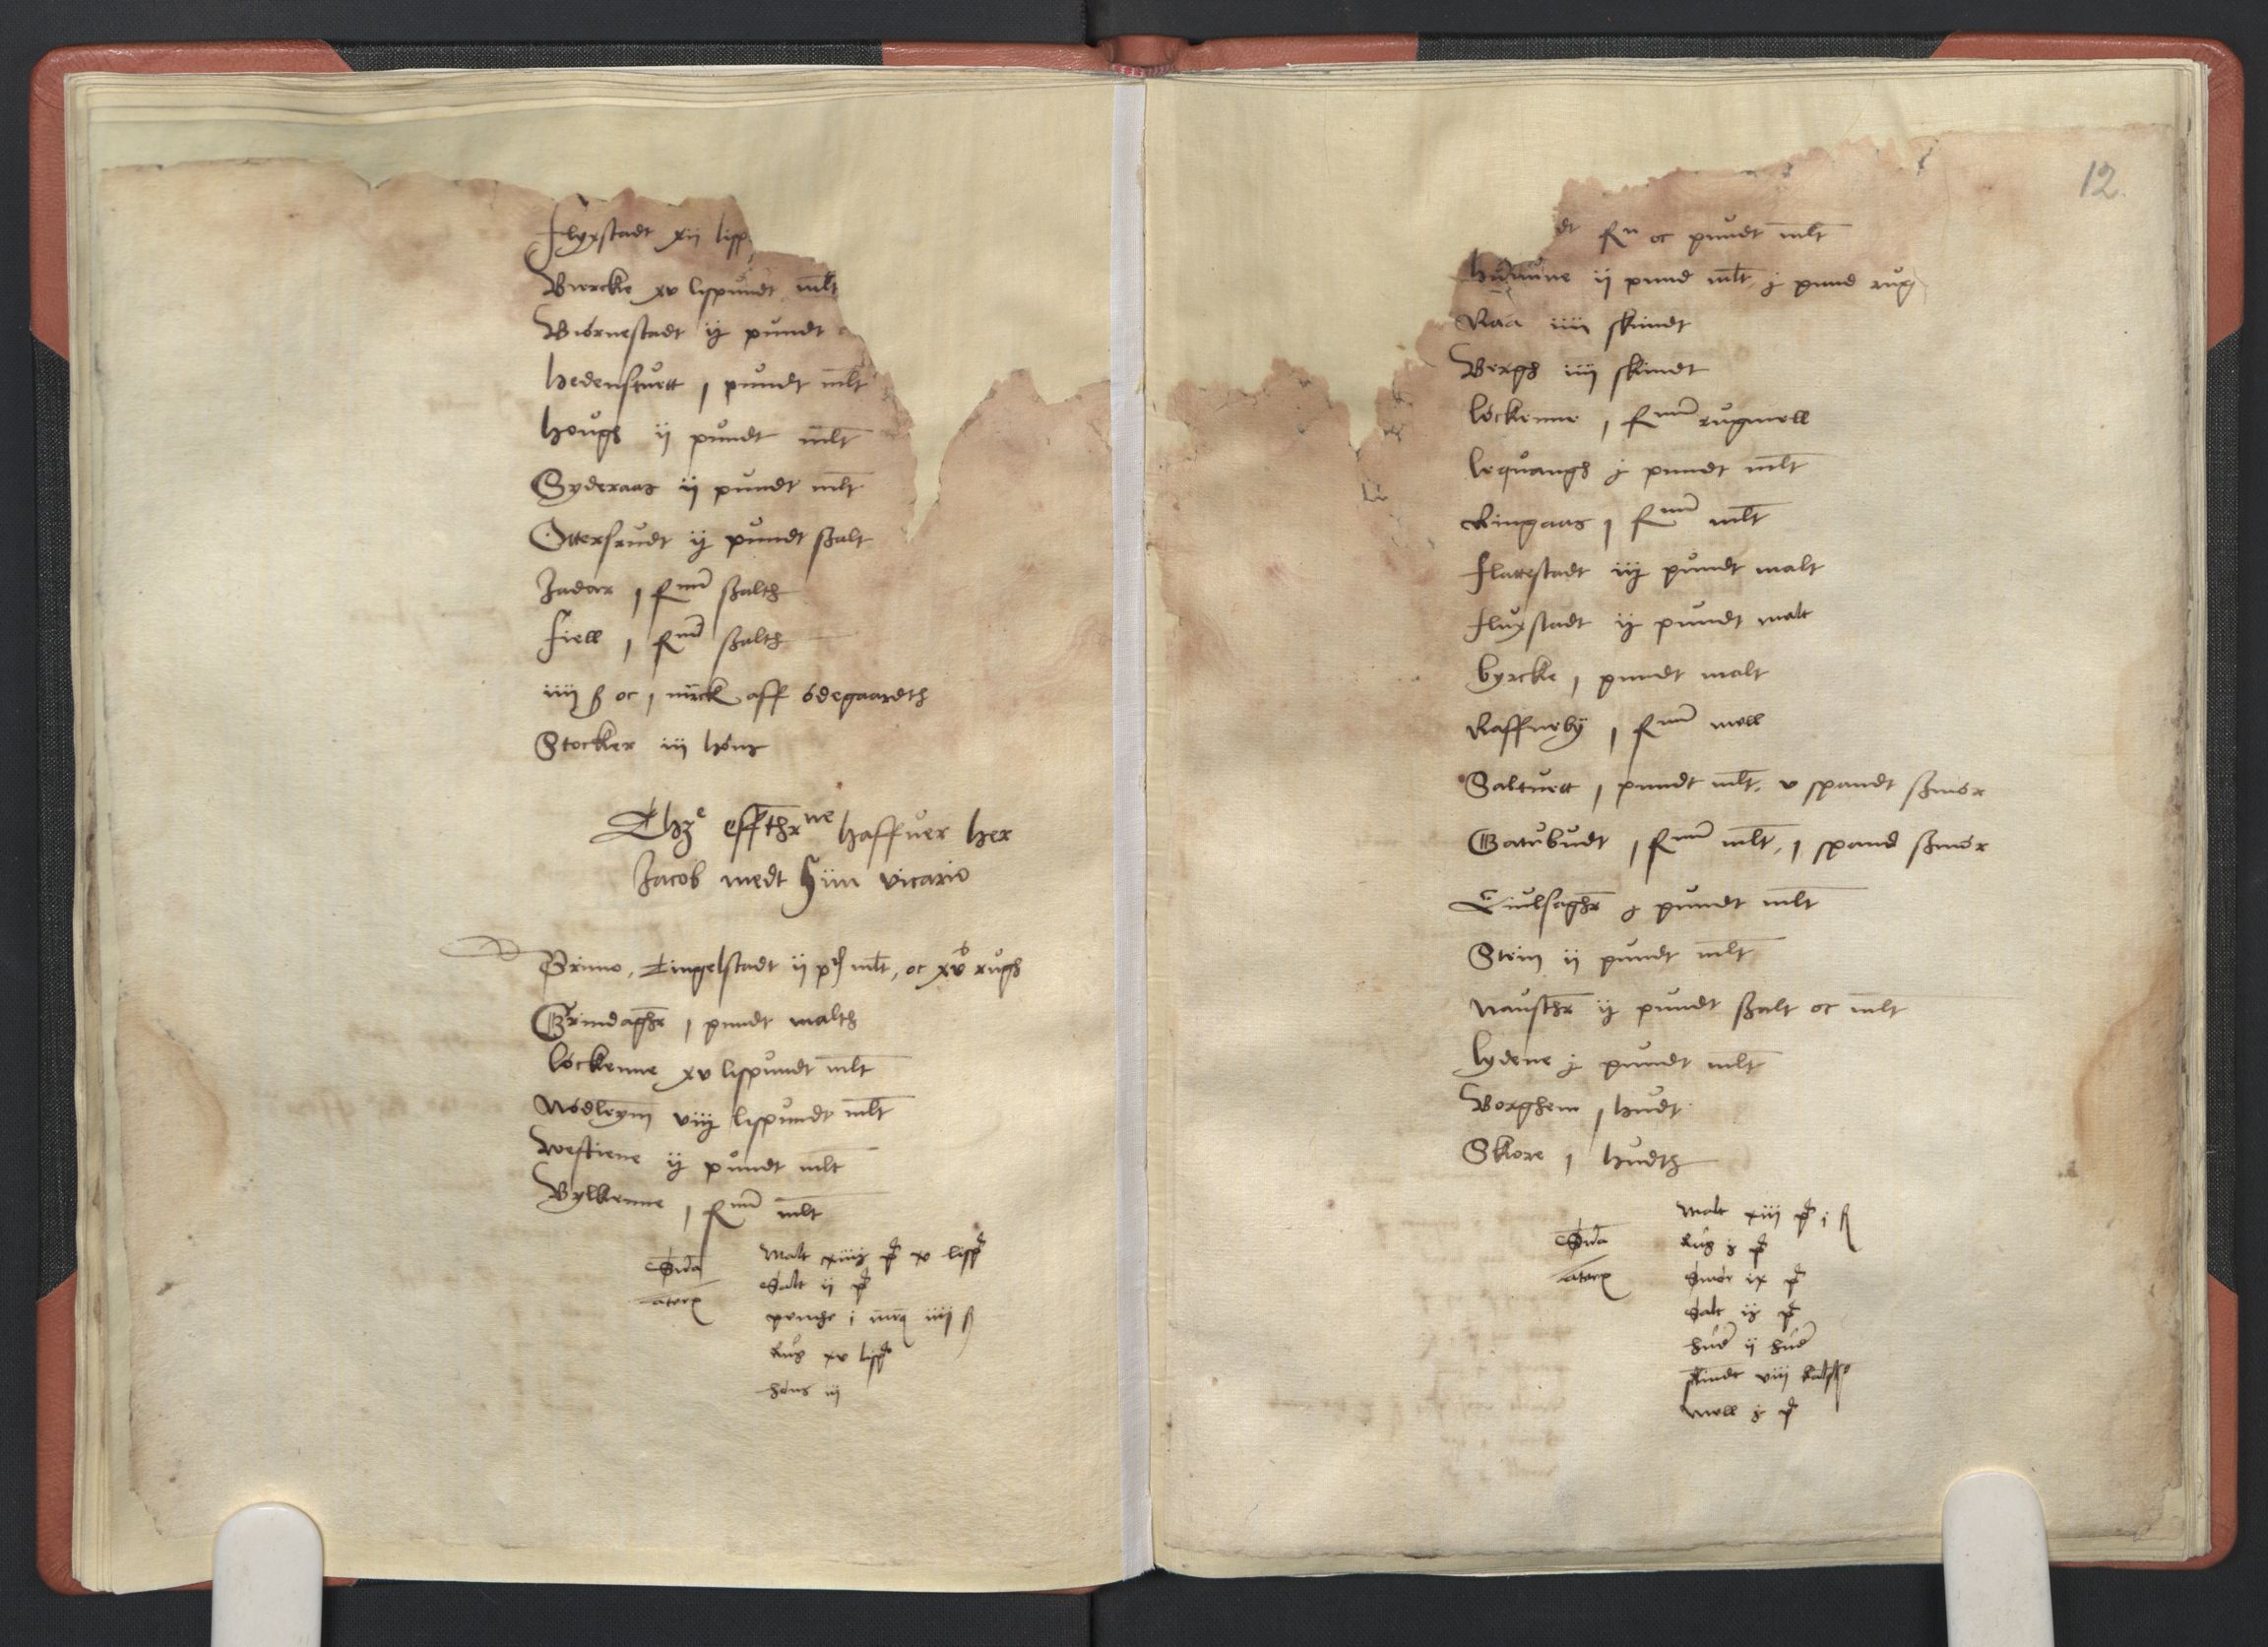 Flyxstadt xij lisp
Biercke xv lispundt mlt
Biórnestadt ij pundt
Hedenstuett j pundt mlt
Hougs ij pundt mlt
Syderaas ij pundt mlt
Ottersrudt ij pundt szalt
Jader j fmd szalth
Fiell j fmd szalth
iiij ß oc j mrck aff ódegaardth
Stocker iij hóns
Thze effthrne haffuer her
Jacob medt siin vicario
Primo, Tingelstadt ij pd mlt, oc xv rugh
Grindaghr j pundt malth
Lóckenne xv lispundt mlt
Nódleym viij lispundt mlt
Westiene ij pundt mlt
Bylkenne j fmd mlt
Sua
Malt xiiij pd xv lispd
Salt ij pd
penge i mrq iiij ß
Rug xv lispd
hóns iij
12.
dt fn oc pundt mlt
Hunune ij pund mlt j pund rug
Raa iiij skindt
Bergh iiij skindt
Lóckenne j fmd rugmell
Lequangh j pundt mlt
Ringaas j fmd mlt
Flattestadt iij pundt malt
Fluxstadt ij pundt malt
Byrcke j pundt malt
Raffneby j fmd mell
Saltuett j pundt mlt, v spandt szmór
Gatubudt j fmd mlt, j spand szmór
Tiulsaghr j pundt mlt
Stein ij pundt mlt
Nausthr ij pundt szalt oc mlt
Lydene j pundt mlt
Borghem j hudt
Skore j hudth
Sua
Malt xiii pd i f
Rug j pd
Smór ix pd
Salt ij pd
hud ij hud
skindt viij kalfsk
Mell j pd